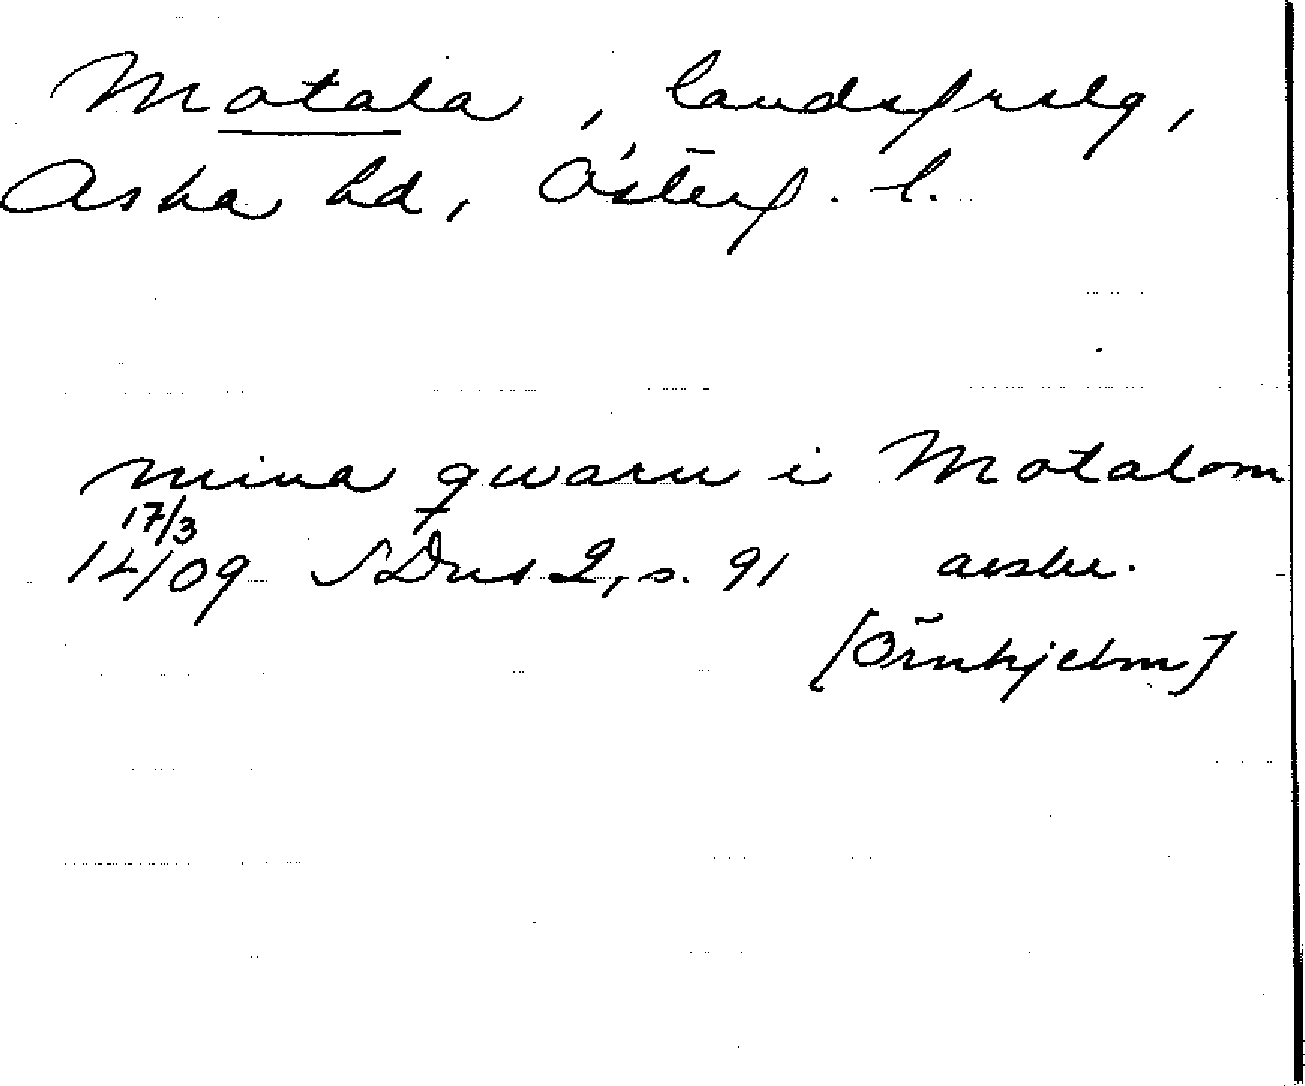 Motala, landsfrslg,
Aska hd, Österg. l.
mina qwarn i Motalom
17/3
14/09 SDns 2, s. 91 avskr.
[Örnhjelm]